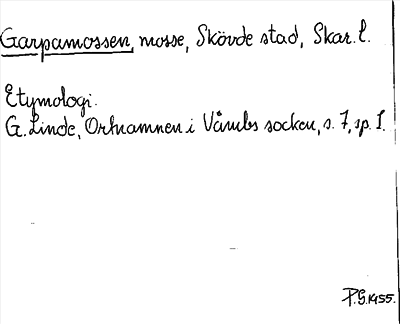 Garpamossen, mosse, Skövde stad, Skar. l.
Etymologi.
G. Linde, Ortnamnen i Våmbs socken, s. 7, sp. 1.
P.G. 1955.